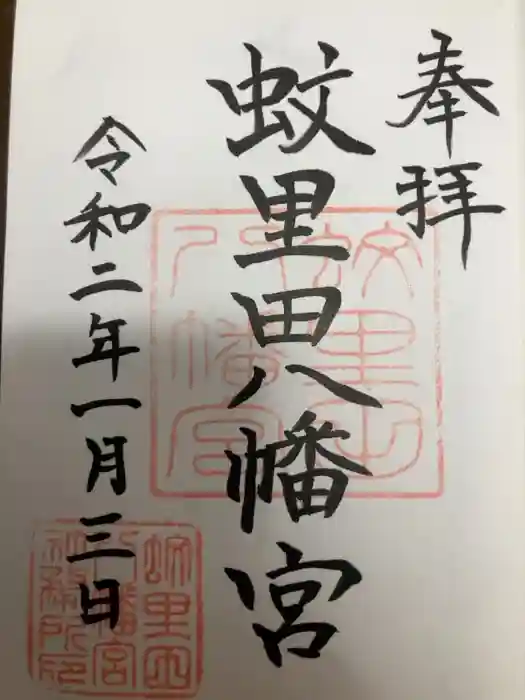 奉拝
蚊里田八幡宮
令和二年一月三日
蚊里田八幡宮
蚊里田八幡宮社務所印